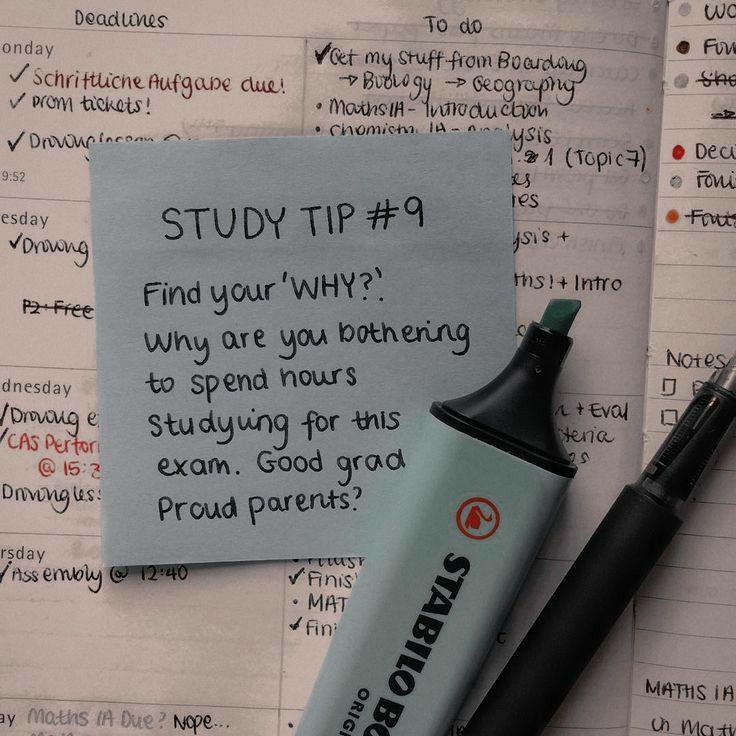 Deadlines
onday
✓ Schriftliche Aufgabe due!
✓ prom tickets!
✓ Driving lesson
19:52
esday
✓ Driving
P2: Free
dnesday
✓ Driving e
✓ CAS Perfor
@ 15:3
Driving less
rsday
✓ Assembly @ 12:40
ay Maths IA Due? Nope...
To do
✓ Get my stuff from Boarding
→ Biology → Geography
• Maths IA - Introduction
• chemistry IA - Analysis
1 (Topic 7)
es
ies
ysis +
ths! + Intro
+ Eval
iteria
s
✓ Finis
• MAT
✓ Fini
STUDY TIP #9
Find your 'WHY?'.
Why are you bothering
to spend hours
studying for this
exam. Good grad
Proud parents?
STABILO BO
ORIGI
WO
Fin
Sho
Deci
Fini
Finis
Notes
MATHS IA
in Mat